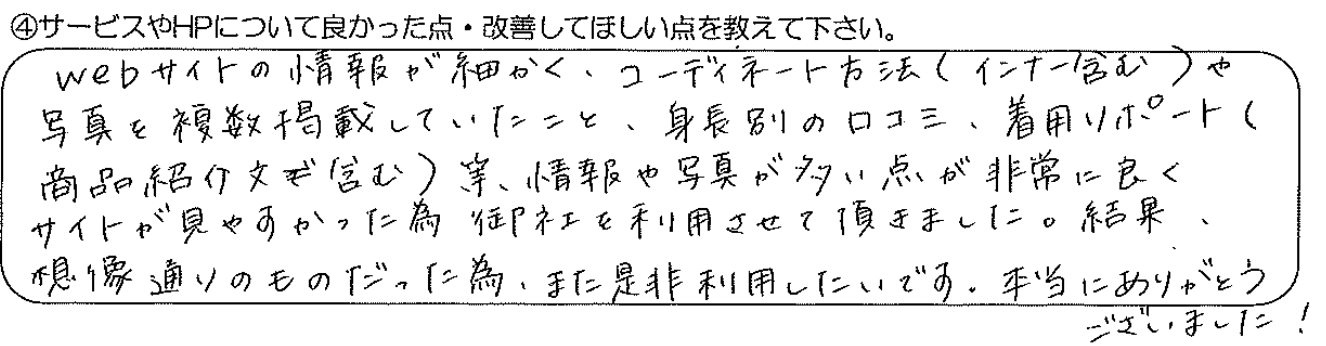 ④サービスやHPについて良かった点・改善してほしい点を教えて下さい。
webサイトの情報が細かく、コーディネート方法(インナー含む)や
写真を複数掲載していたこと、身長別の口コミ、着用リポート(
商品紹介文も含む)等、情報や写真が多い点が非常に良く
サイトが見やすかった為御社を利用させて頂きました。結果、
想像通りのものだった為、また是非利用したいです。本当にありがとう
ございました!